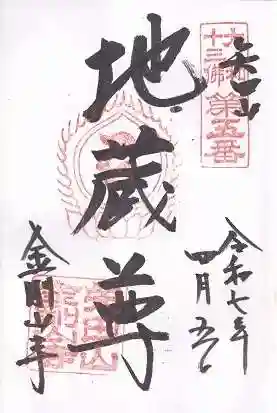 大和
十三佛
第五番
地蔵尊
令和七年
四月五日
金剛山寺